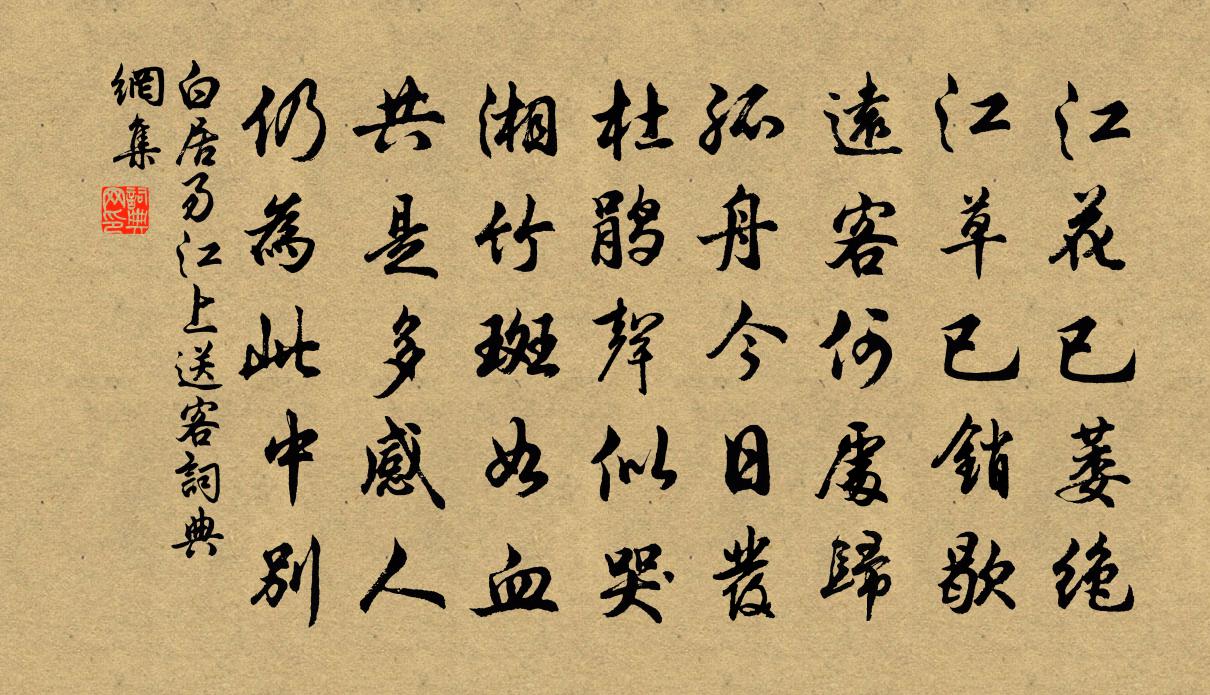 江花已萎絶
江草已銷歇
遠客何處歸
孤舟今日發
杜鹃聲似哭
湘竹斑如血
共是多感人
仍為此中別
白居易江上送客詞典
網集
詞典
网印